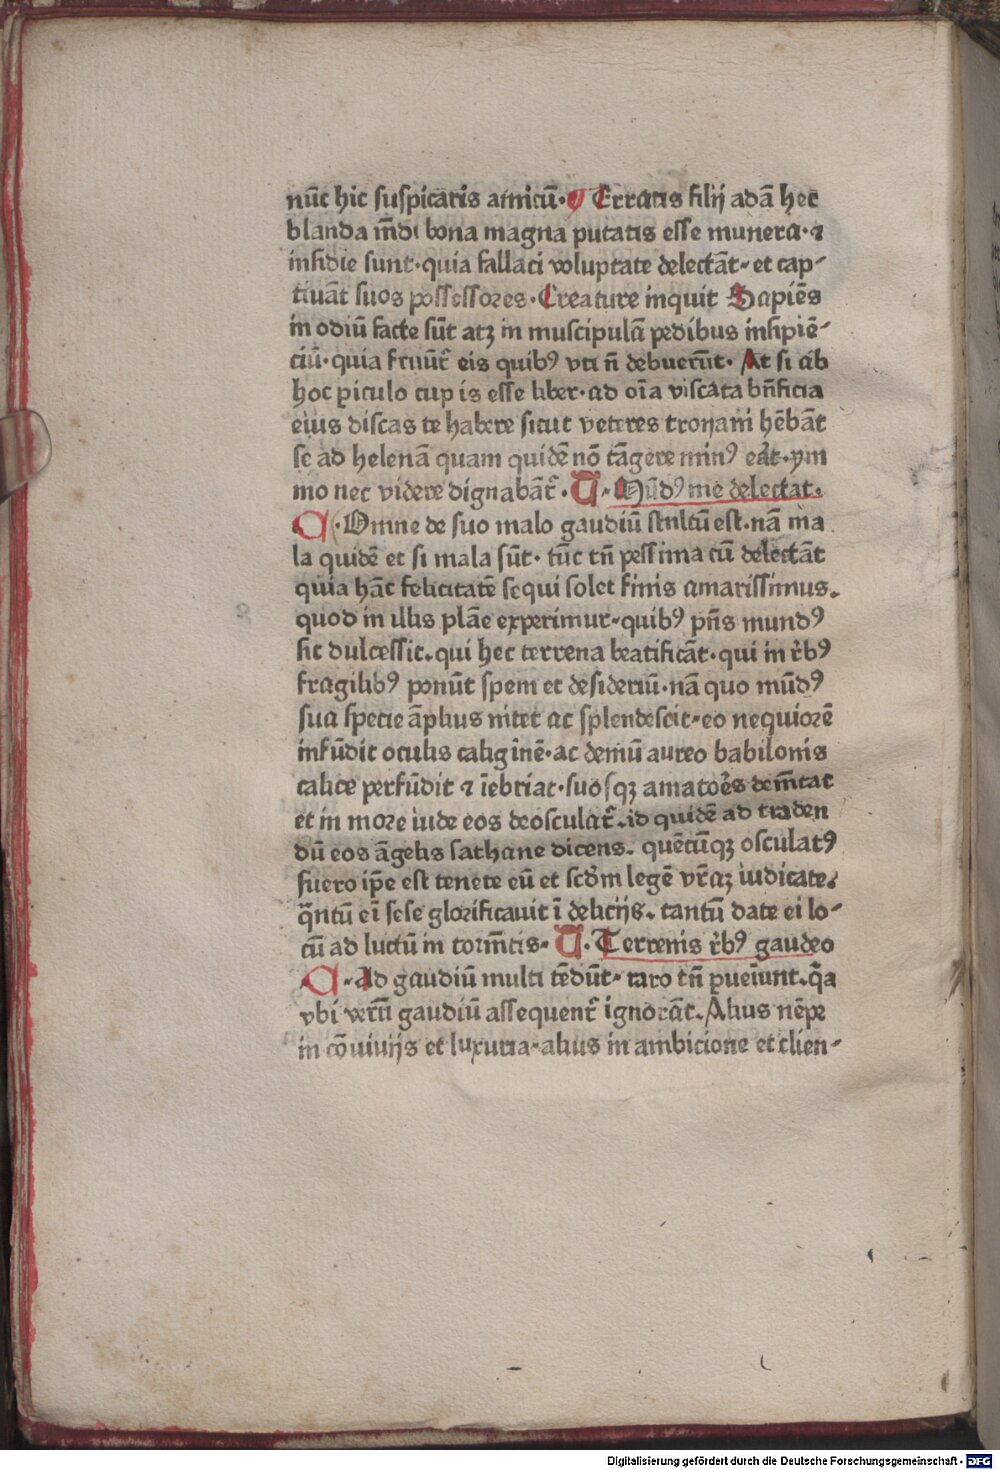 nūc hic suspicaris amicū· ¶ Erratis filij adā hec
blanda mūdi bona magna putatis esse munera· ⁊
insidie sunt· quia fallaci voluptate delectāt· et cap-
tiuāt suos possessores· Creature inquit Sapiēs
in odiū facte sūt atꝫ in muscipulā pedibus insipiē-
ciū· quia fruūt̄ eis quibꝰ vti n̄ debuerūt· At si ab
hoc ꝑiculo cupis esse liber· ad oīa viscata bn̄ficia
eius discas te habere sicut veteres troyani hēbāt
se ad helenā quam quidē nō tāgere minꝰ eāt· ym
mo nec videre dignabāt̄· G· Mūdꝰ me delectat·
C· Omne de suo malo gaudiū stultū est· nā ma
la quidē et si mala sūt· tūc tn̄ pessima cū delectāt
quia hāc felicitatē sequi solet finis amarissimus·
quod in illis plāe experimur· quibꝰ pn̄s mundꝰ
sic dulcessit· qui hec terrena beatificāt· qui in r̄bꝰ
fragilibꝰ ponūt spem et desideriū· nā quo mūdꝰ
sua specie āplius nitet ac splendescit· eo nequiorē
infūdit oculis caliginē· ac demū aureo babilonis
calice perfūdit ⁊ īebriat· suosqꝫ amatores demētat
et in more iude eos deosculat̄· id quidē ad traden
dū eos āgelis sathane dicens· quēcūqꝫ osculatꝰ
fuero ip̄e est tenete eū et scd̄m legē vr̄aꝫ iudicate·
q̄ntū eī sese glorificauit ī delicijs· tantū date ei lo-
cū ad luctū in torm̄tis· G· Terrenis r̄bꝰ gaudeo
C· Ad gaudiū multi tēdūt· raro tn̄ ꝑueīunt· q̄a
vbi verū gaudiū assequent̄ ignorāt· Alius nēpe
in cōuiuijs et luxuria· alius in ambicione et clien-
Digitalisierung gefördert durch die Deutsche Forschungsgemeinschaft - DFG